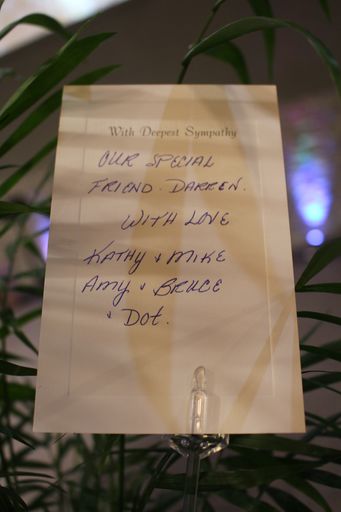 With Deepest Sympathy
OUR SPECIAL
FRIEND. DARREN.
WITH LOVE
KATHY & MIKE
AMY & BRUCE
& DOT.